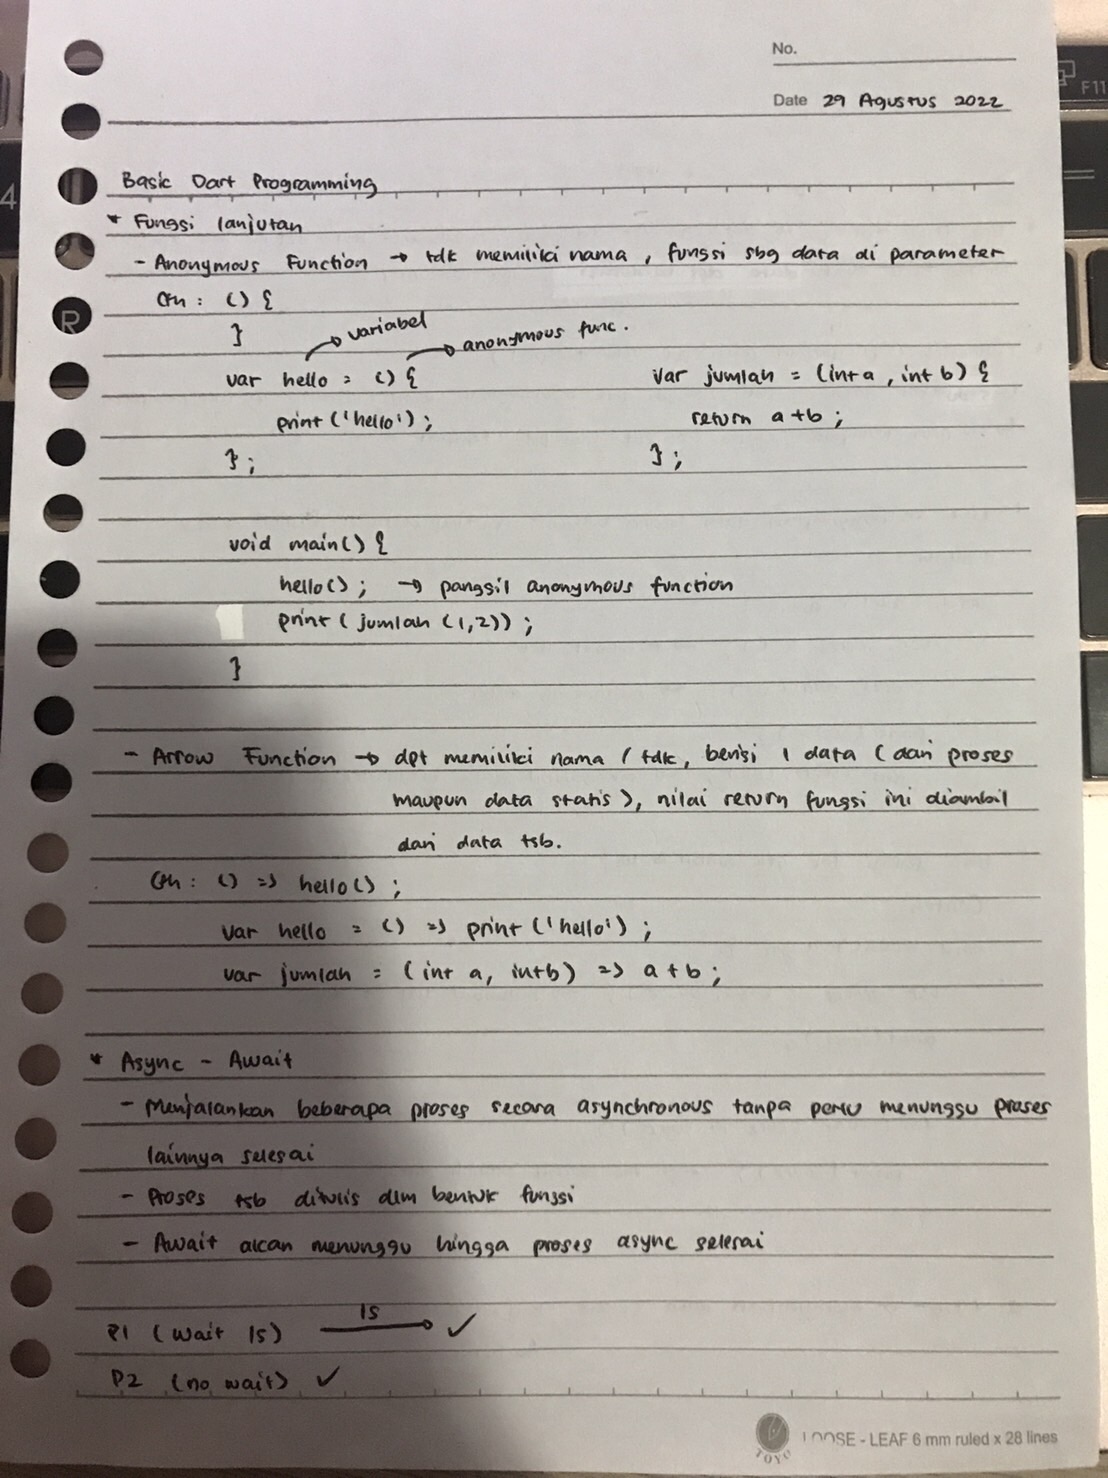 No.
Date 29 Agustus 2022
F11
4
R
Basic Dart Programming
* Fungsi lanjutan
- Anonymous Function → tdk memiliki nama, fungsi sbg data di parameter
Cth : () {
}
variabel
anonymous func.
var hello = () {
print ('hello');
};
var jumlah = (int a, int b) {
return a+b ;
};
void main() {
hello(); → panggil anonymous function
print (jumlah (1,2));
}
- Arrow Function → dpt memiliki nama / tdk, berisi 1 data (dari proses
maupun data statis), nilai return fungsi ini diambil
dari data tsb.
Cth : () => hello();
var hello = () => print ('hello');
var jumlah = (int a, int b) => a + b ;
* Async - Await
- Menjalankan beberapa proses secara asynchronous tanpa perlu menunggu proses
lainnya selesai
- Proses tsb ditulis dlm bentuk fungsi
- Await akan menunggu hingga proses async selesai
P1 (wait 1s) 1s → ✓
P2 (no wait) ✓
TOYO
LOOSE - LEAF 6 mm ruled x 28 lines